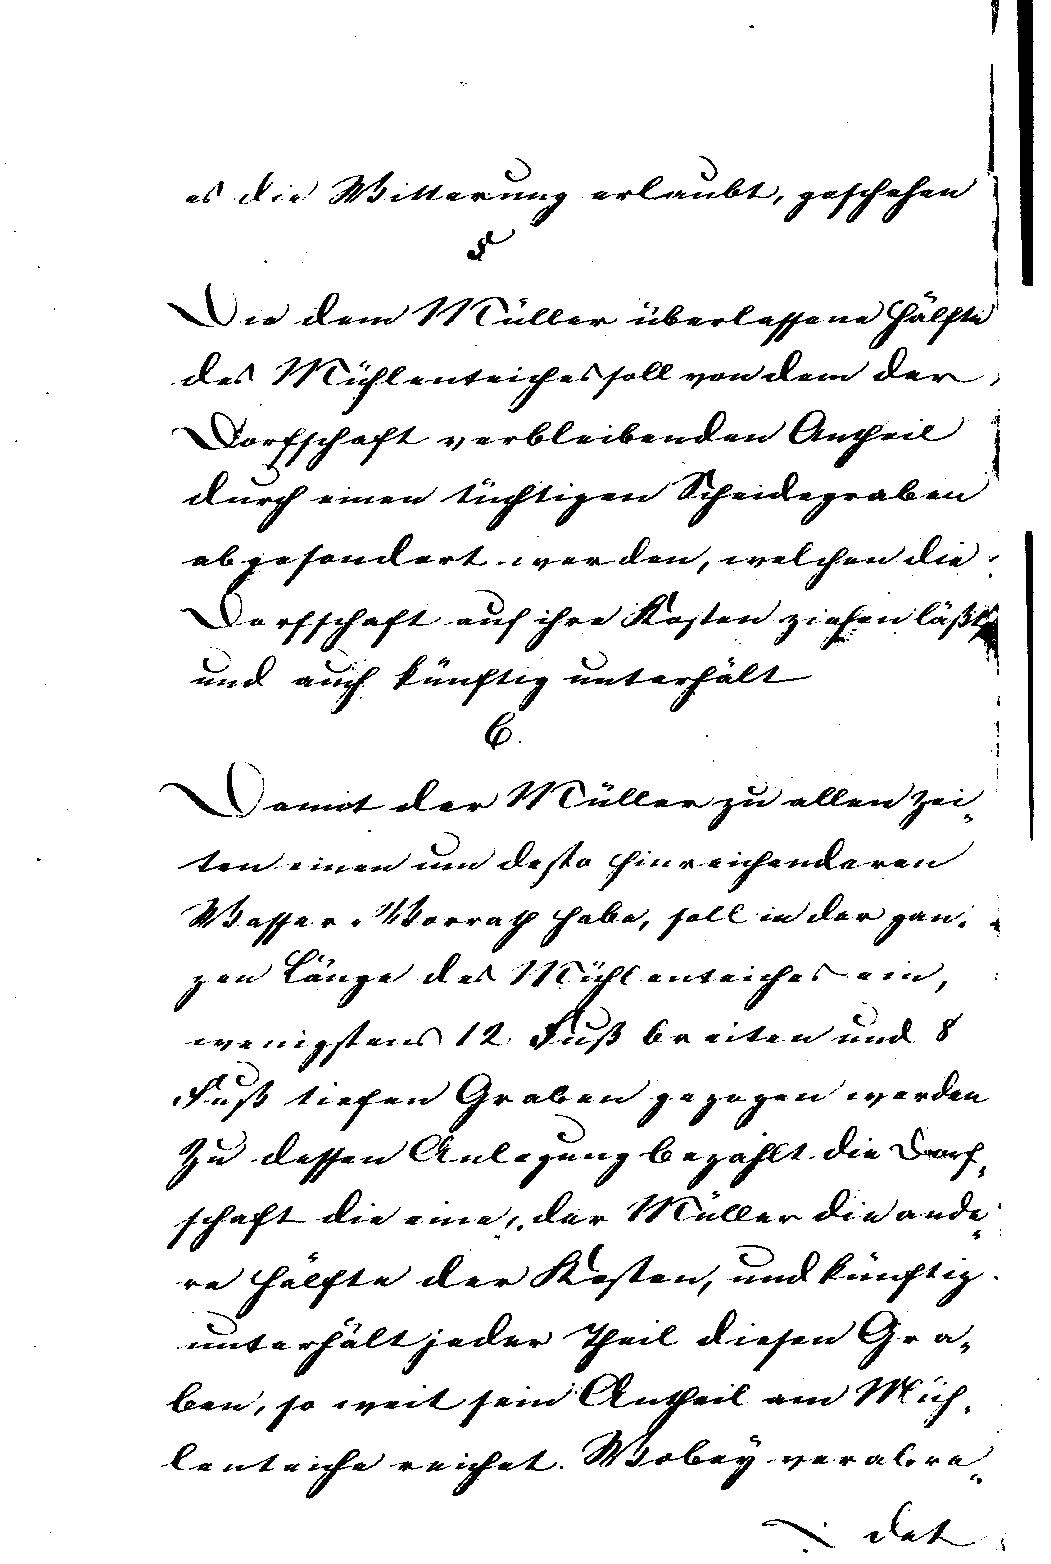 es die Witterung erlaubt, geschehen
5
Die dem Müller überlassene Hälfte
des Mühlenteiches soll von dem der
Dorfschaft verbleibenden Antheil
durch einen tüchtigen Scheidegraben
abgesondert werden, welchen die
Dorfschaft auf ihre Kosten ziehen läßt,
und auch künftig unterhält
6.
Damit der Müller zu allen Zei-
ten einen um desto hinreichenderen
Wasser-Vorrath habe, soll in der gan-
zen Länge des Mühlenteiches ein,
wenigstens 12 Fuß breiten und 8
Fuß tiefen Graben gezogen werden
Zu dessen Anlegung bezahlt die Dorf-
schaft die eine, der Müller die ande-
re Hälfte der Kosten, und künftig
unterhält jeder Theil diesen Gra-
ben, so weit sein Antheil am Müh-
lenteiche reichet. Wobey verabre-
det